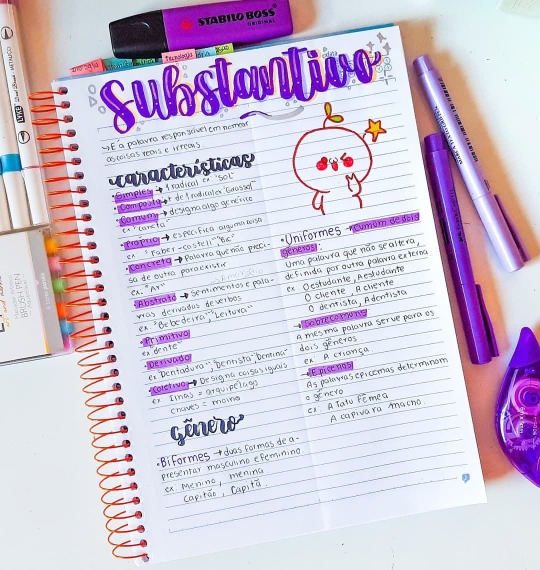 STABILO BOSS
ORIGINAL
tecnologia
substantivo
→ É a palavra responsável em nomear
as coisas reais e irreais
características
•Simples → 1 radical ex "Sol"
•Composto → + de 1 radical ex "Girassol"
•Comum → designa algo genérico
ex "caneta"
•Próprio → especifica alguma coisa
ex "Faber-castell" "Bic"
•Concreto → Palavra que não preci-
sa de outra para existir
ex. "Ar"
•Abstrato → Sentimentos e pala-
vras derivadas de verbos
ex "Bebedeira", "Leitura"
•Primitivo
ex dente
•Derivado
ex "Dentadura", "Dentista", "Dentina"
•Coletivo → Designa coisas iguais
ex Ilhas = arquipélago
chaves = molho
gênero
•Biformes → duas formas de a-
presentar masculino e feminino
ex. Menino, menina
Capitão, Capitã
•Uniformes → comum de dois
gêneros:
Uma palavra que não se altera,
definida por outra palavra externa
ex O estudante, A estudante
O cliente, A cliente
O dentista, A dentista
→ Sobrecomuns
A mesma palavra serve para os
dois gêneros
ex A criança
→ Epicenos
As palavras epicemas determinam
o gênero
ex: A tatu Fêmea
A capivara macho.
BRUSH PEN